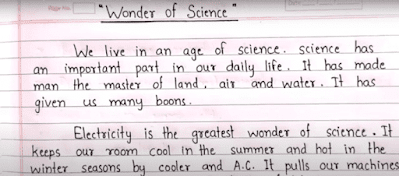 Page No.
Date
"Wonder of Science"
We live in an age of science. science has
an important part in our daily life. It has made
man the master of land, air and water. It has
given us many boons.
Electricity is the greatest wonder of science. It
keeps our room cool In the summer and hot in the
winter seasons by cooler and A.C. It pulls our machines